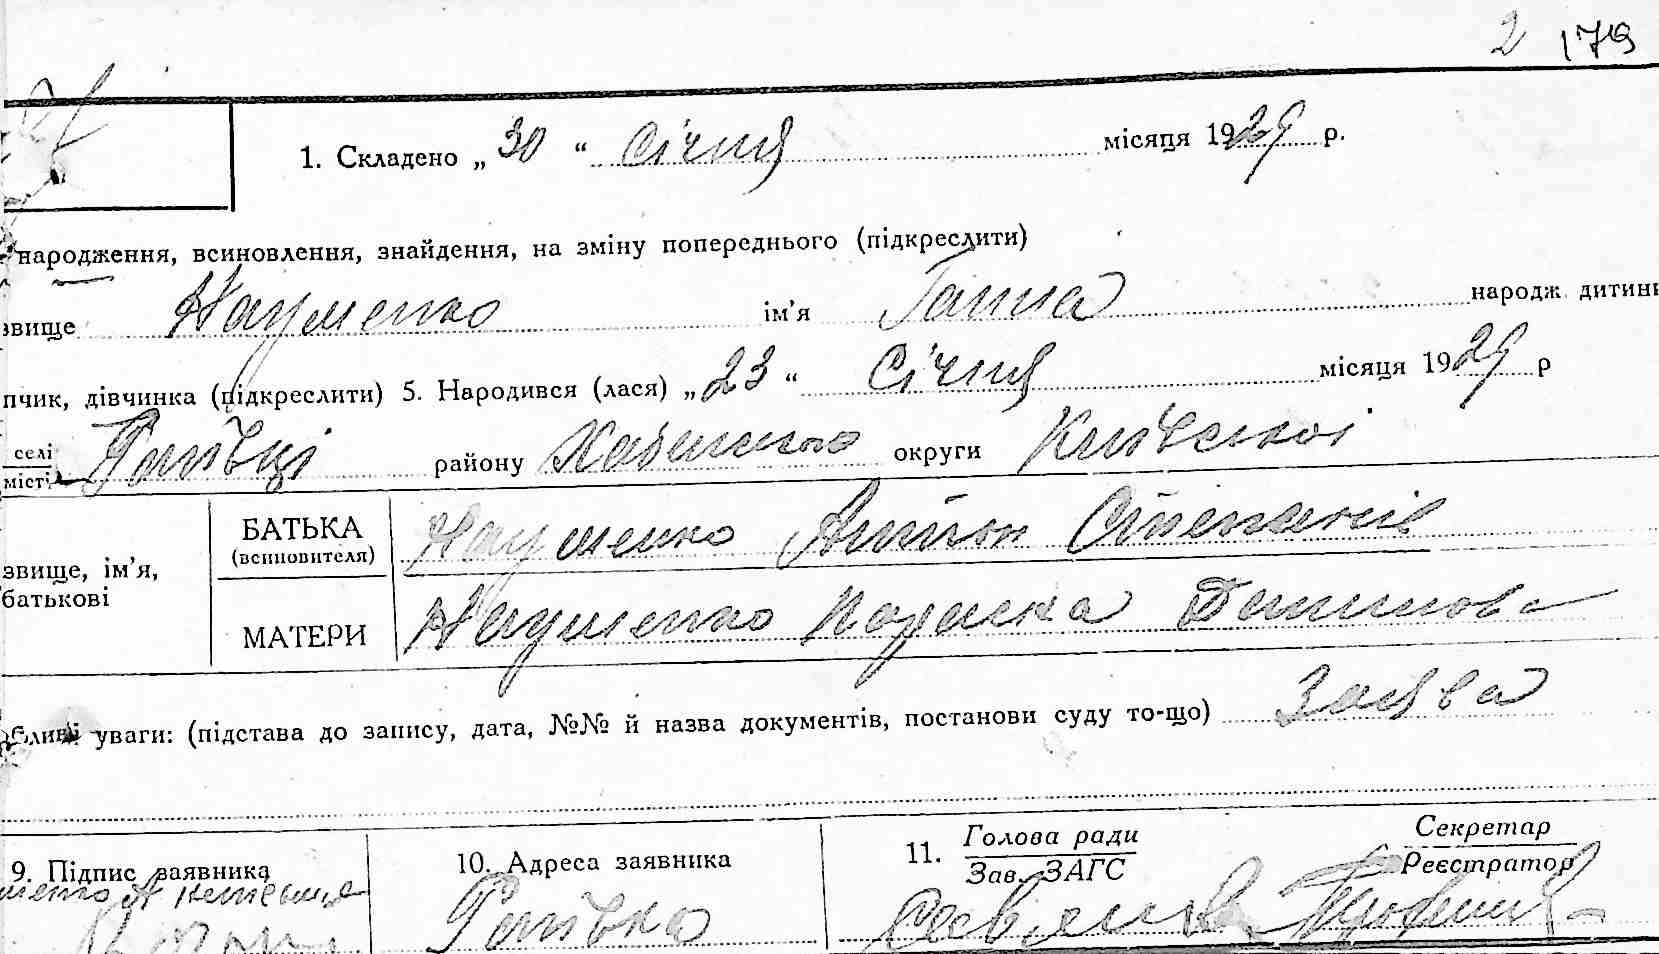 2 179
1. Складено „ 30 “ Січня місяця 1929 р.
народження, всиновлення, знайдення, на зміну попереднього (підкреслити)
звище Науменко ім’я Ганна народж. дитини
пчик, дівчинка (підкреслити) 5. Народився (лася) „ 23 “ Січня місяця 1929 р
селі
місті району Хабенського округи Київської
БАТЬКА
(всиновителя) Науменко Антон Степанів
звище, ім’я,
батькові
МАТЕРИ Науменко Параска
уваги: (підстава до запису, дата, №№ й назва документів, постанови суду то-що) Заява
9. Підпис заявника 10. Адреса заявника 11. Голова ради Секретар
Зав. ЗАГС Реєстратор